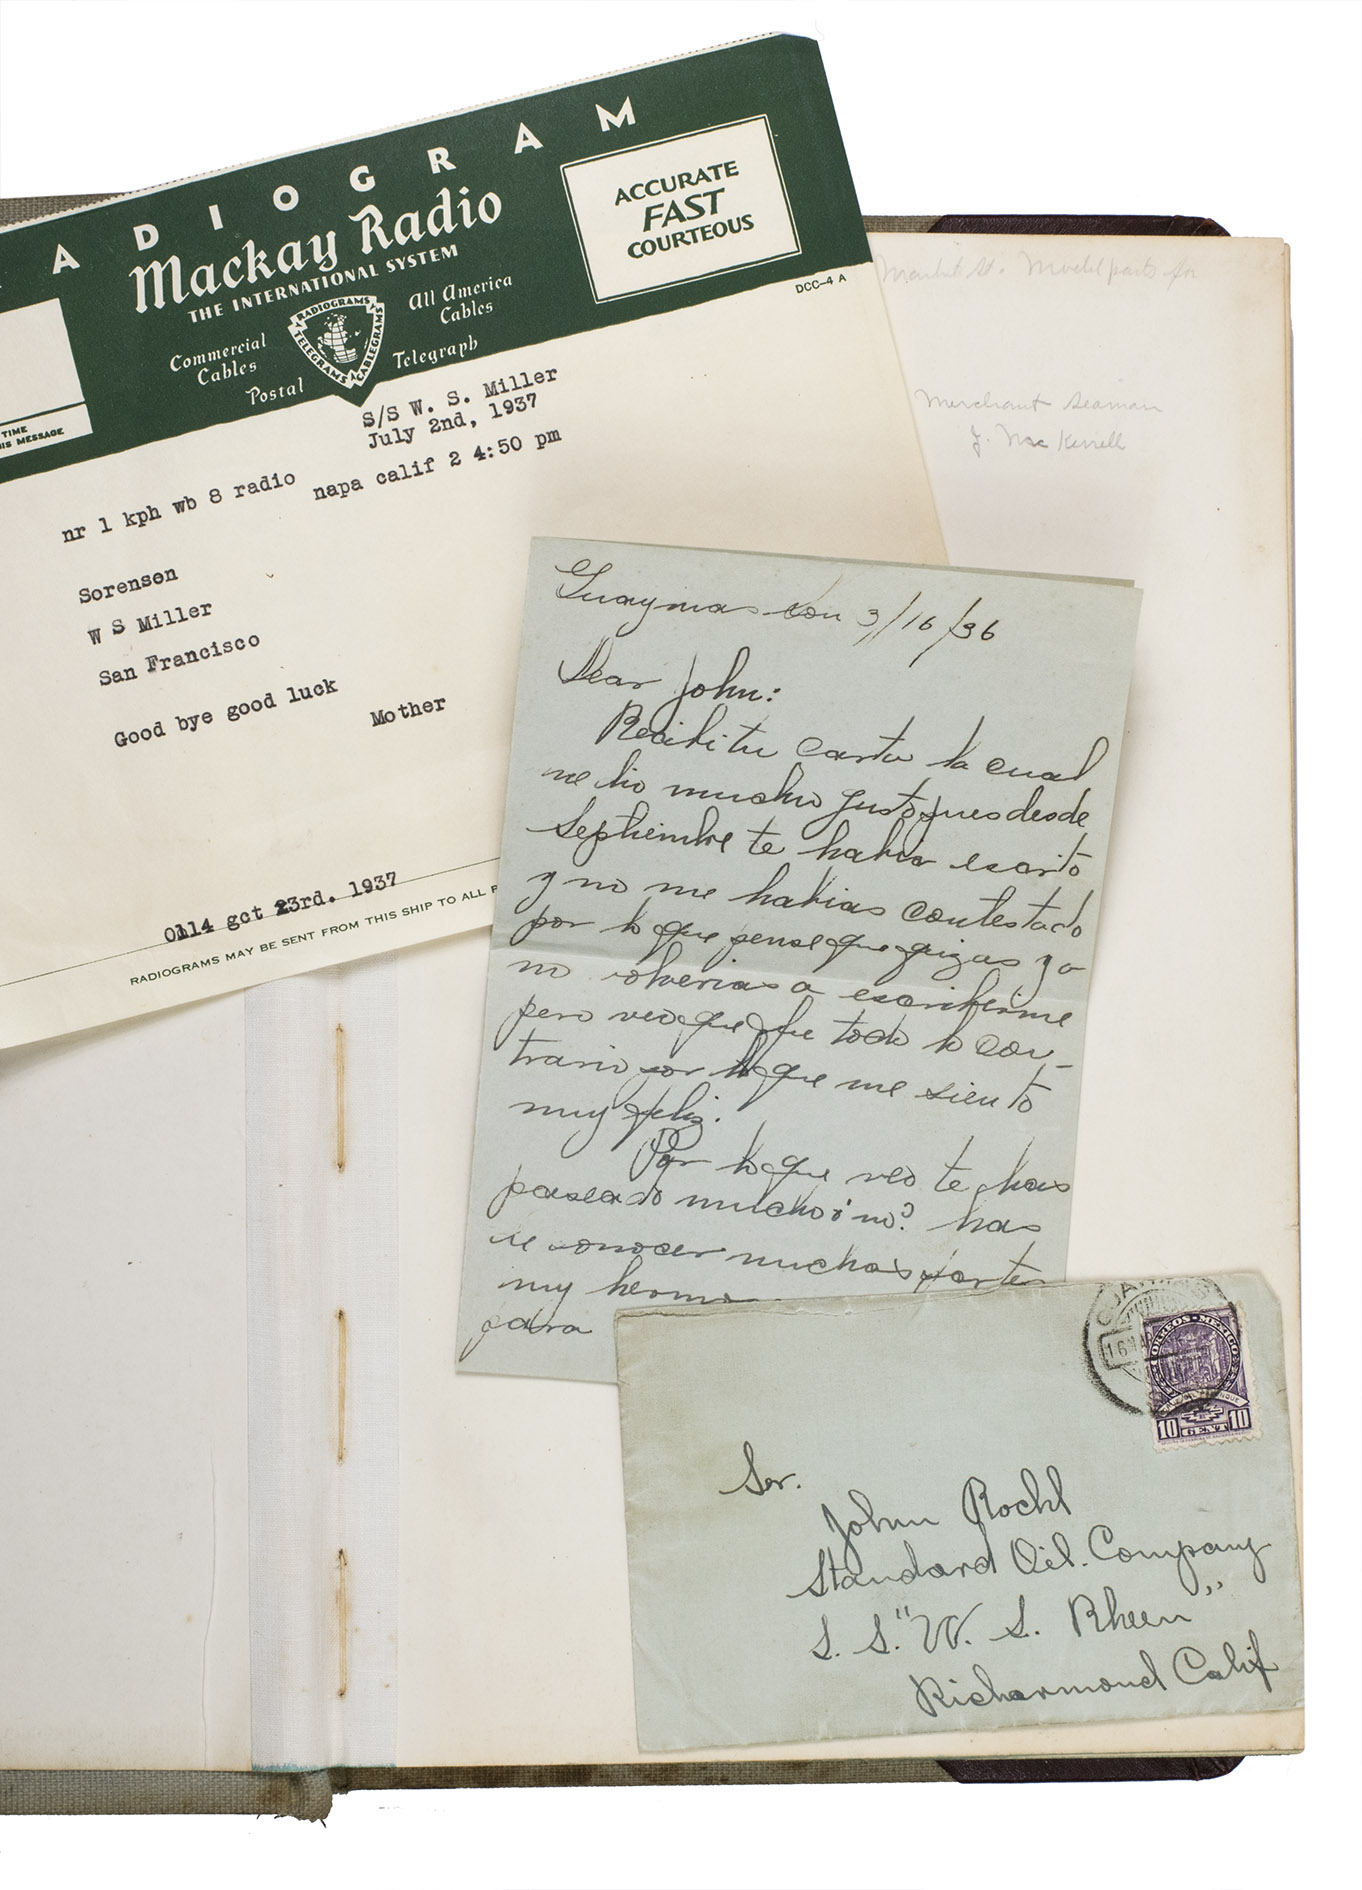 ADIOGRAM
Mackay Radio
THE INTERNATIONAL SYSTEM
Commercial
Cables
Postal
RADIOGRAMS
TELEGRAMS
CABLEGRAMS
All America
Cables
Telegraph
ACCURATE
FAST
COURTEOUS
DCC-4 A
TIME
IS MESSAGE
S/S W. S. Miller
July 2nd, 1937
nr 1 kph wb 8 radio napa calif 2 4:50 pm
Sorensen
W S Miller
San Francisco
Good bye good luck
Mother
0114 gct 23rd. 1937
RADIOGRAMS MAY BE SENT FROM THIS SHIP TO ALL
Market St. Model parts for
Merchant Seaman
Guaymas Son 3/16/36
Dear John:
Recibi tu carta la cual
me dio mucho gusto pues desde
Septiembre te habia escrito
y no me habias contestado
por lo que pense que quizas ya
no volverias a escribirme
pero veo que fue todo lo con-
trario por lo que me siento
muy feliz.
Por lo que veo te has
paseado mucho ¿no? has
de conocer muchas partes
muy hermo
para
CORREOS MEXICO
10 CENT 10
Sr.
John Rochl
Standard Oil. Company
S. S. "W. S. Rheen"
Richarmond Calif